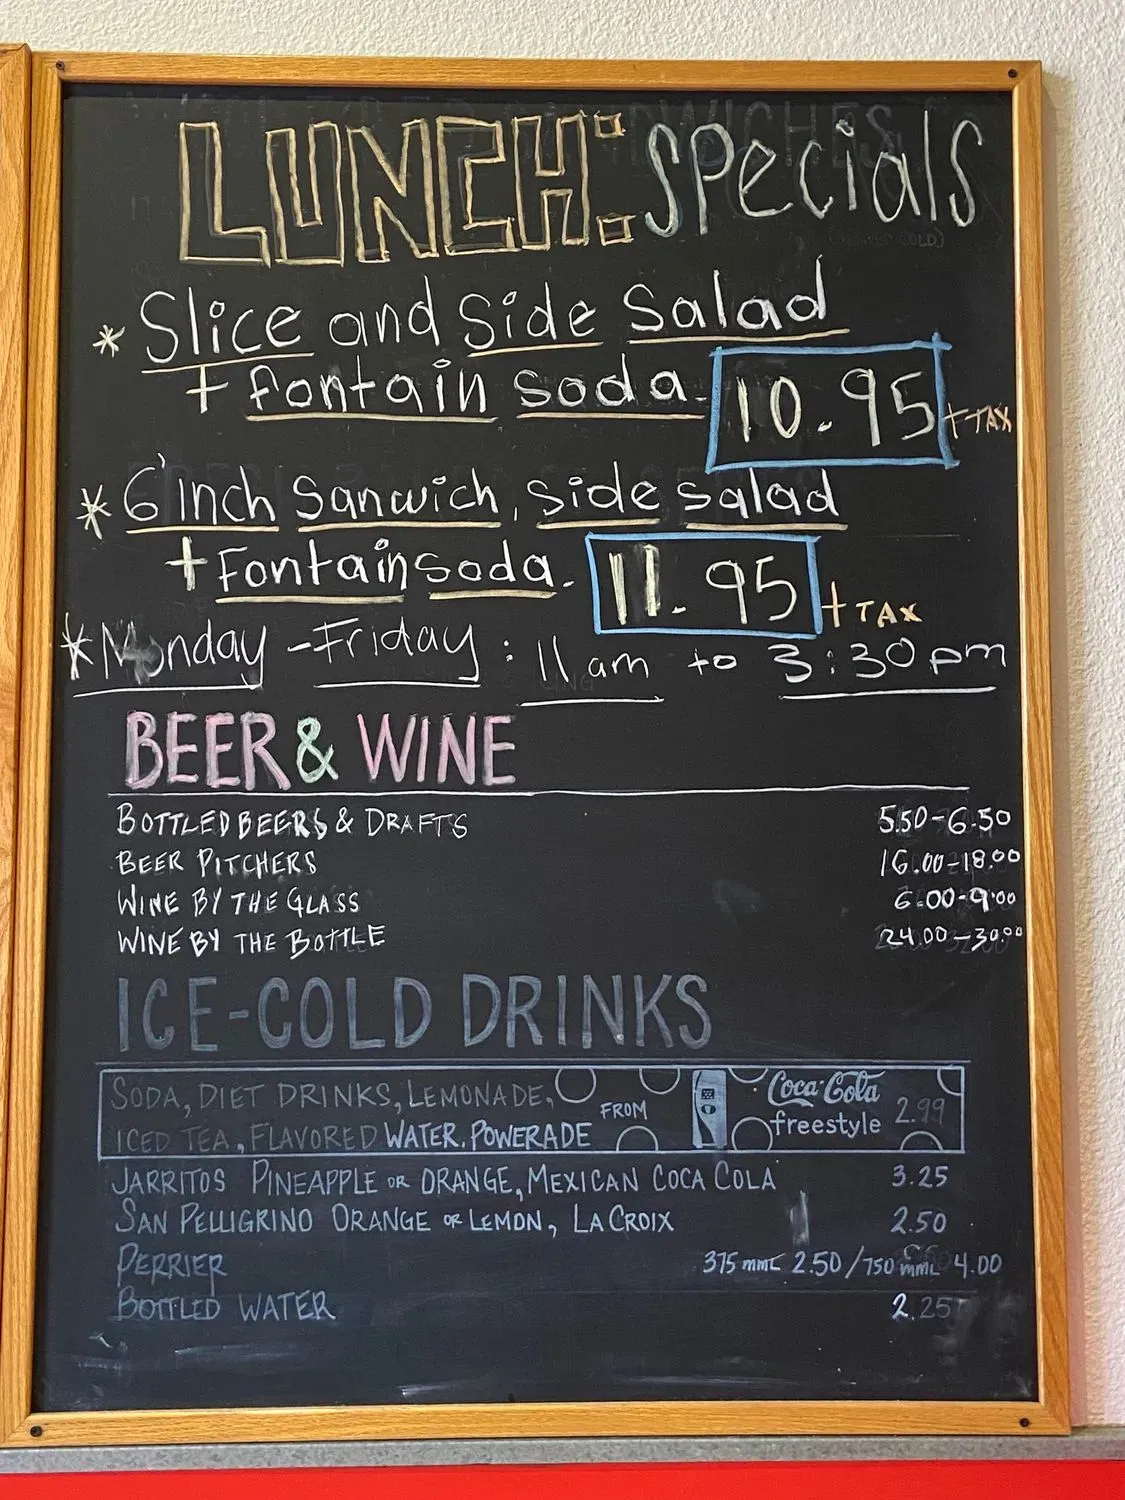 LUNCH: specials
* Slice and Side Salad
+ fontain soda. 10.95 + TAX
* 6'inch Sanwich, Side salad
+ Fontain soda. 11.95 + TAX
* Monday - Friday : 11 am to 3:30 pm
BEER & WINE
BOTTLED BEERS & DRAFTS 5.50-6.50
BEER PITCHERS 16.00-18.00
WINE BY THE GLASS 6.00-9.00
WINE BY THE BOTTLE 24.00-30.00
ICE-COLD DRINKS
SODA, DIET DRINKS, LEMONADE,
ICED TEA, FLAVORED WATER. POWERADE
FROM
Coca-Cola
freestyle 2.99
JARRITOS PINEAPPLE OR ORANGE, MEXICAN COCA COLA 3.25
SAN PELLIGRINO ORANGE OR LEMON, LA CROIX 2.50
PERRIER 375 mmL 2.50 / 750 mmL 4.00
BOTTLED WATER 2.25